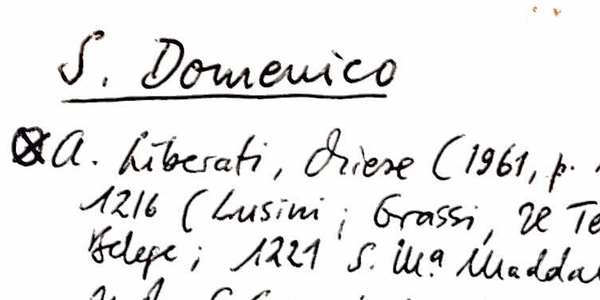 S. Domenico
A. Liberati, Chiese (1961, p.
1216 (Lusini; Grassi, 
Belege; 1221 S. Mª Maddal